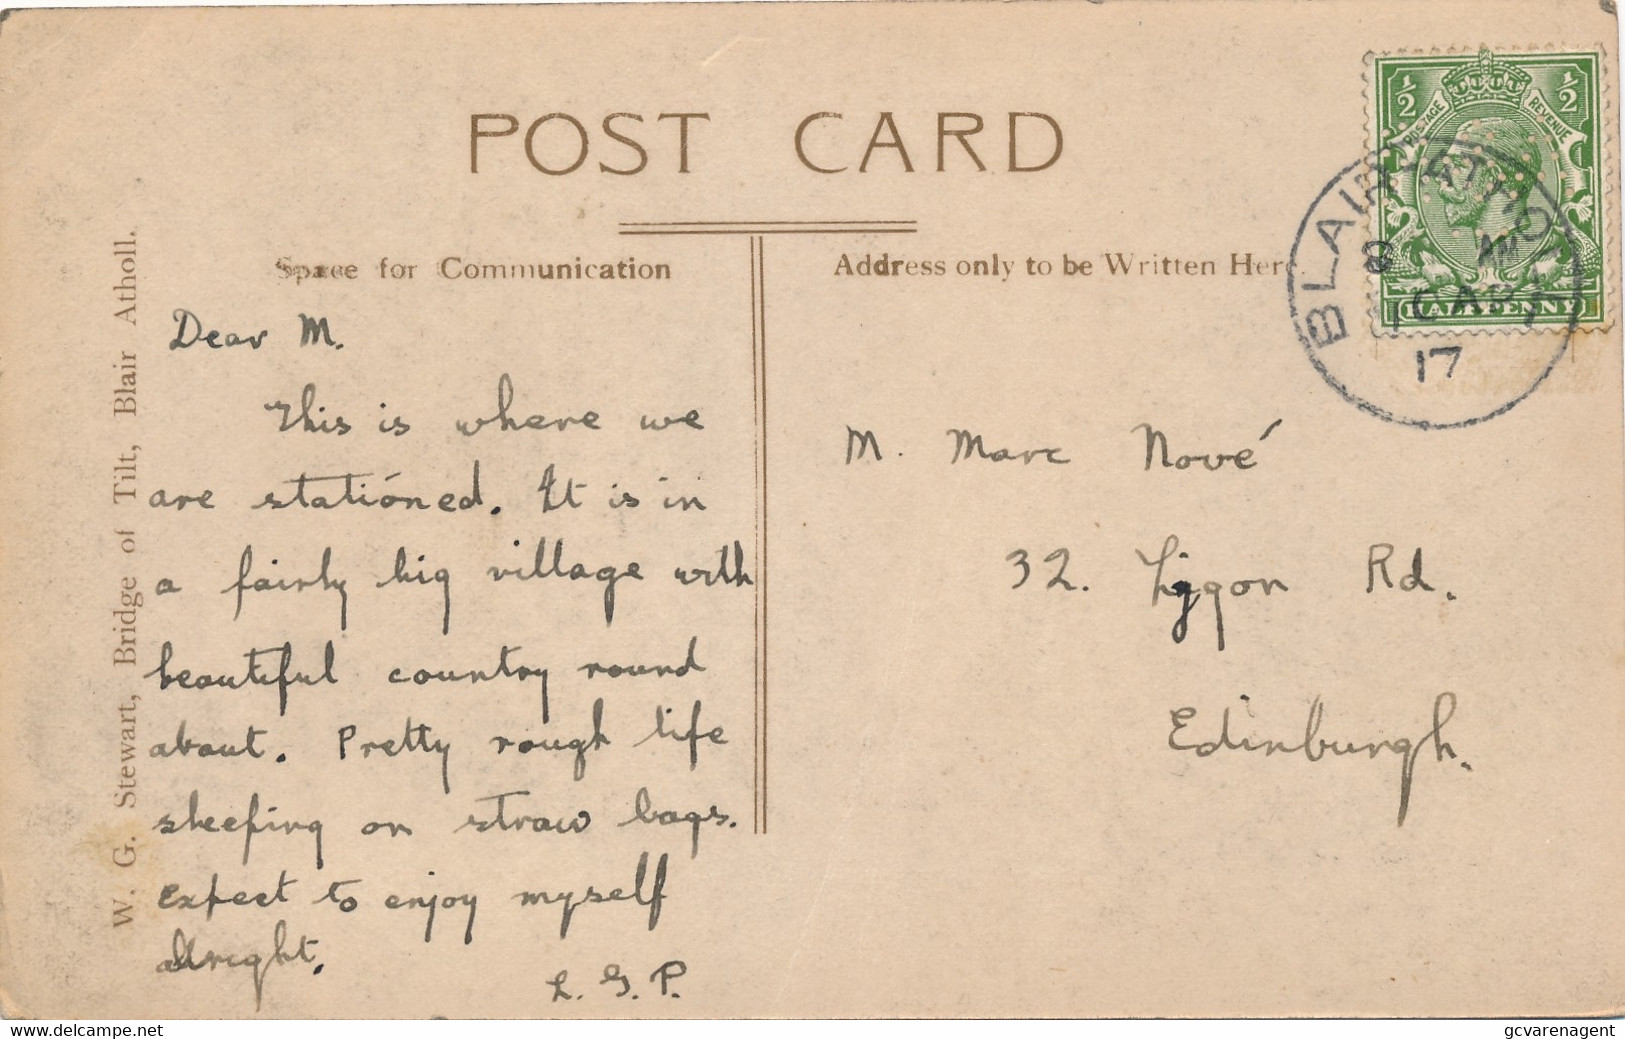 POST CARD
Space for Communication
Address only to be Written Here.
W. G. Stewart, Bridge of Tilt, Blair Atholl.
Dear M.
This is where we
are stationed. It is in
a fairly big village with
beautiful country round
about. Pretty rough life
sleeping on straw bags.
Expect to enjoy myself
alright.
L. G. P.
M. Marc Nové
32. Liggon Rd.
Edinburgh.
½ ½
POSTAGE REVENUE
HALFPENNY
BLAIR-ATHOLL
8 AM
10 AP
17
© www.delcampe.net
gcvarenagent